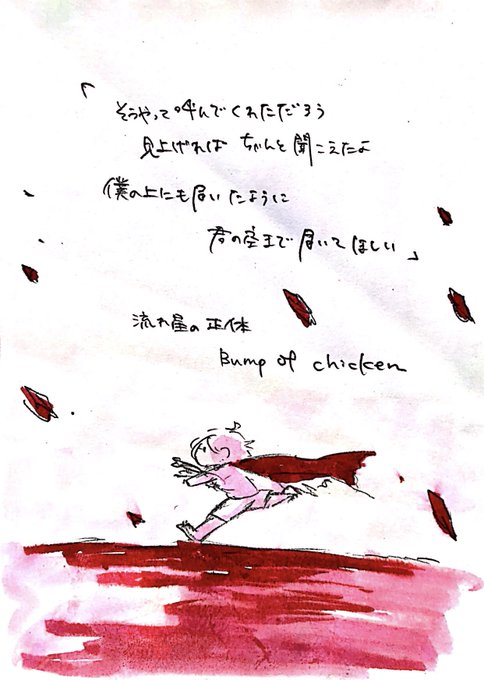 「そうやって呼んでくれただろう
見上げれば ちゃんと聞こえたよ
僕の上にも届いたように
君の空まで届いてほしい」
流れ星の正体
Bump of chicken